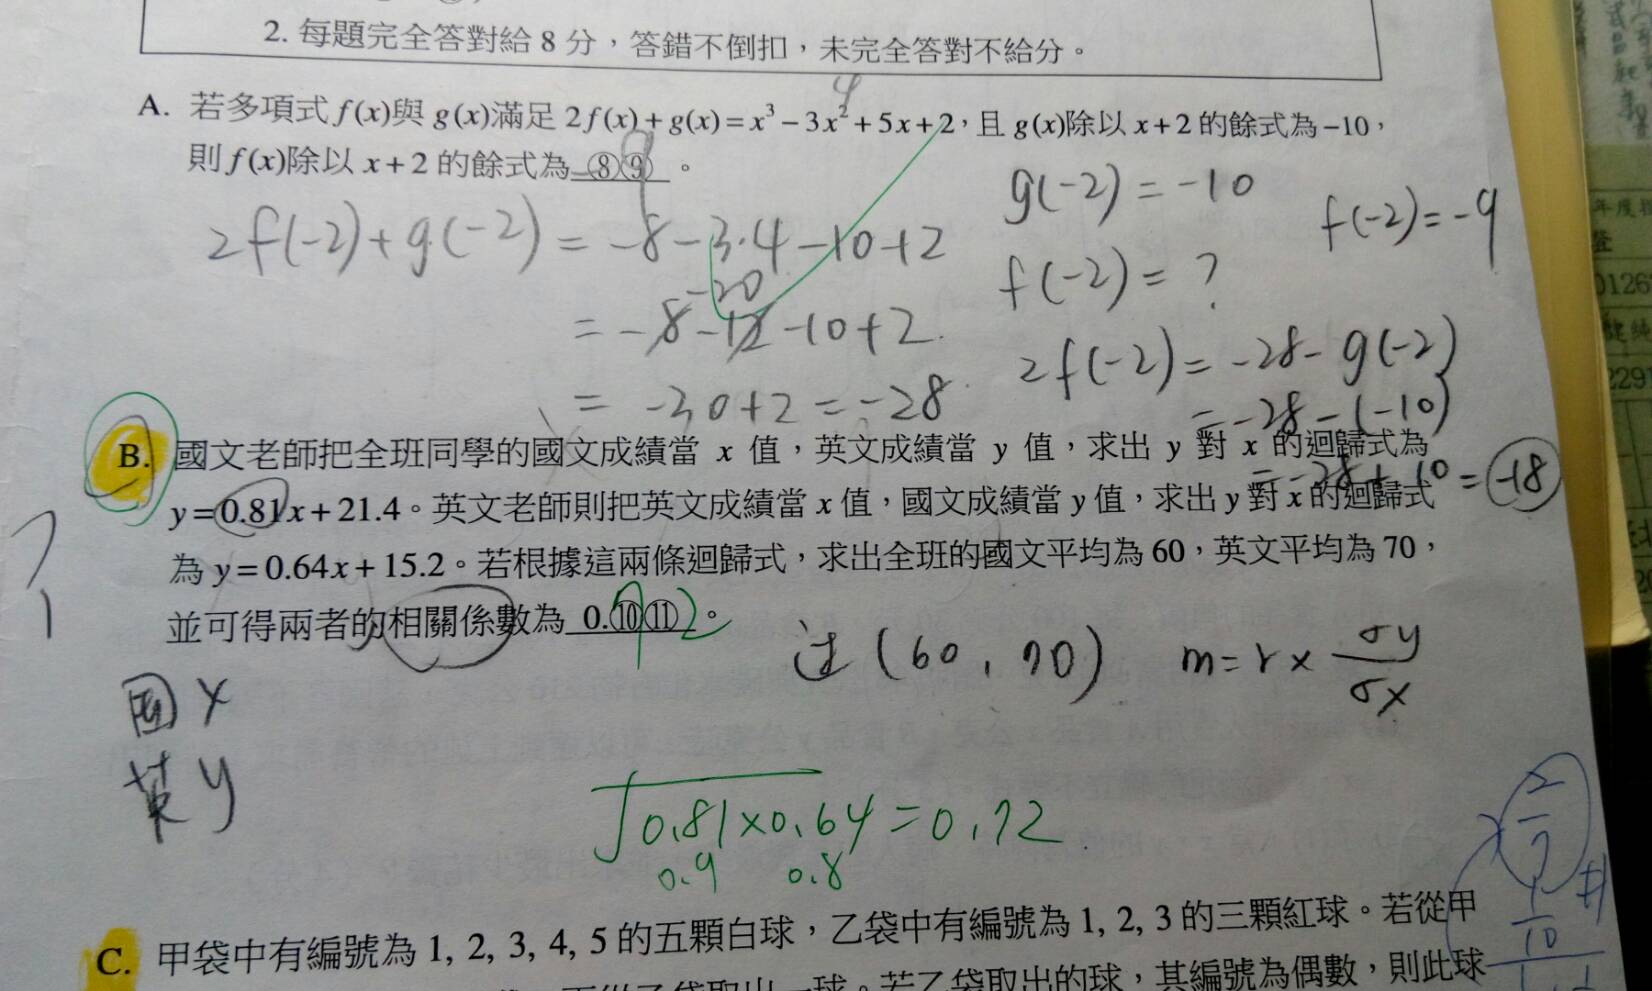 2. 每題完全答對給 8 分，答錯不倒扣，未完全答對不給分。
4
A. 若多項式 f(x)與 g(x)滿足 2f(x)+g(x)=x³−3x²+5x+2，且 g(x)除以 x+2 的餘式為−10，
則 f(x)除以 x+2 的餘式為 ⑧⑨ 。
− 9
g(-2) = -10
f(-2)=-9
2f(-2)+g(-2) = -8-3·4-10+2
f(-2) = ?
-20
= -8-12-10+2
2f(-2) = -28-g(-2)
= -30+2=-28
= -28-(-10)
= -28+10 = -18
B. 國文老師把全班同學的國文成績當 x 值，英文成績當 y 值，求出 y 對 x 的迴歸式為
y=0.81x+21.4。英文老師則把英文成績當 x 值，國文成績當 y 值，求出 y 對 x 的迴歸式
為 y=0.64x+15.2。若根據這兩條迴歸式，求出全班的國文平均為 60，英文平均為 70，
並可得兩者的相關係數為 0.⑩⑪。
?
72
过 (60, 70) m=r×σy/σx
國 x
英 y
√0.81×0.64=0.72
0.9 0.8
2/7
1/10
C. 甲袋中有編號為 1, 2, 3, 4, 5 的五顆白球，乙袋中有編號為 1, 2, 3 的三顆紅球。若從甲
再從乙袋取出一球。若乙袋取出的球，其編號為偶數，則此球
年度
0126
2291